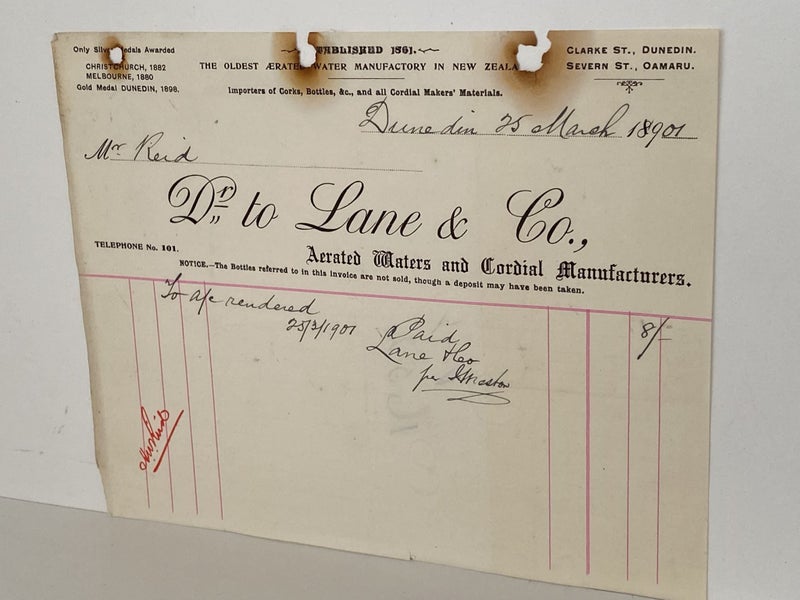 Only Silver Medals Awarded
CHRISTCHURCH, 1882
MELBOURNE, 1880
Gold Medal DUNEDIN, 1898.
ESTABLISHED 1861.
THE OLDEST ÆRATED WATER MANUFACTORY IN NEW ZEALAND
Importers of Corks, Bottles, &c., and all Cordial Makers' Materials.
CLARKE ST., DUNEDIN.
SEVERN ST., OAMARU.
Dunedin 25 March 18901
Mr Reid
Dr. to Lane & Co.,
TELEPHONE No. 101.
Aerated Waters and Cordial Manufacturers.
NOTICE.—The Bottles referred to in this invoice are not sold, though a deposit may have been taken.
To a/c rendered 8/-
25/3/1901
Paid
Lane & Co
per